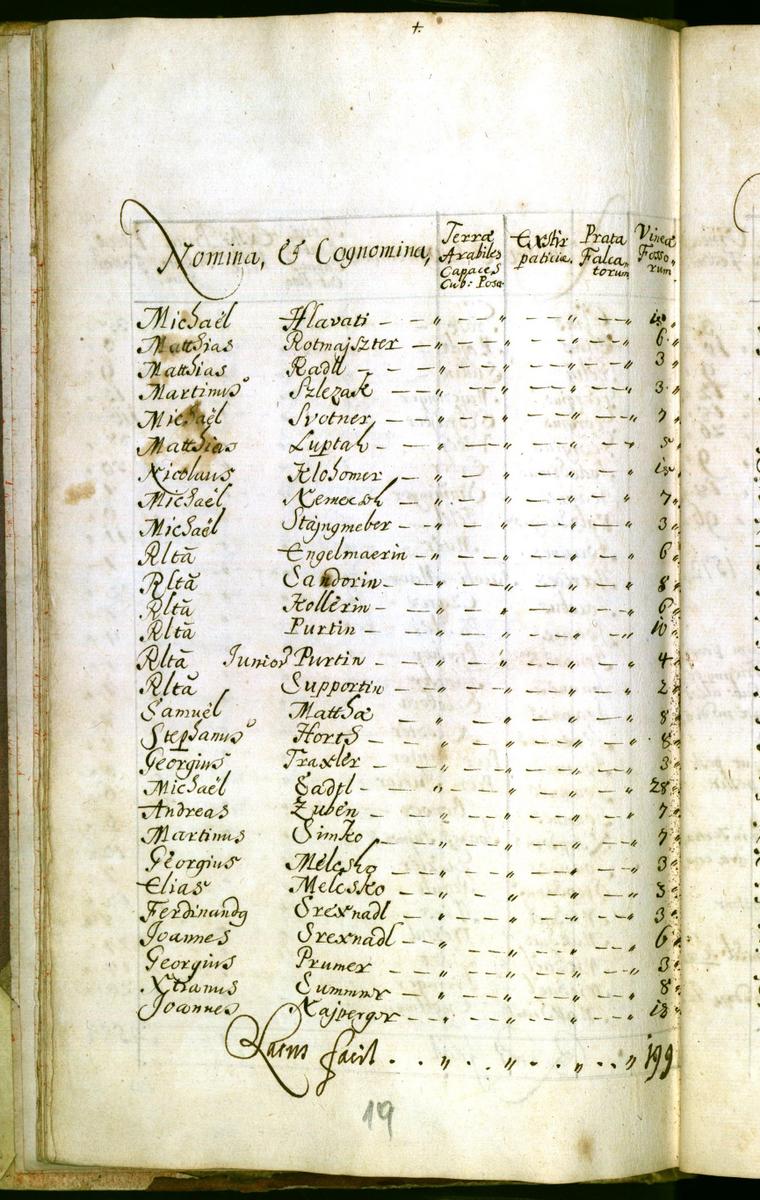 +
Nomina, & Cognomina, Terræ Arabiles Capaces Cub: Posa: Exstirpaticiæ. Prata Falcatorum Vineæ Fossorum.
Michaël Hlavati — — „ — — „ — — „ — — „ „
Matthias Rotmajszter — — „ — — „ — — „ — — „ 6 „
Matthias Radll — — „ — — „ — — „ — — „ 3 „
Martinus Szlezak — — „ — — „ — — „ — — „ 3 „
Michaël Svotner — — „ — — „ — — „ — — „ 7 „
Matthias Luptah — — „ — — „ — — „ — — „ 5 „
Nicolaus Klohomer — — „ — — „ — — „ — — „ „
Michaël Nemecsek — — „ — — „ — — „ — — „ 7 „
Michaël Stajngmeber — — „ — — „ — — „ — — „ 3 „
Rltā Engelmaerin — „ — — „ — — „ — — „ 6 „
Rltā Sandorin — „ — — „ — — „ — — „ 8 „
Rltā Hollerin — „ — — „ — — „ — — „ 6 „
Rltā Purtin — „ — — „ — — „ — — „ 10 „
Rltā Junior Purtin — „ — — „ — — „ — — „ 4 „
Rltā Supportin — — „ — — „ — — „ — — „ 2 „
Samuël Matthæ — — „ — — „ — — „ — — „ 8 „
Stephanus Horth — — „ — — „ — — „ — — „ 8 „
Georgius Traxler — — „ — — „ — — „ — — „ 3 „
Michaël Sadtl — — „ — — „ — — „ — — „ 28 „
Andreas Zuben — — „ — — „ — — „ — — „ 7 „
Martinus Simko — — „ — — „ — — „ — — „ 7 „
Georgius Melcsko — — „ — — „ — — „ — — „ 3 „
Elias Melcsko — — „ — — „ — — „ — — „ 3 „
Ferdinandg Srexnadl — — „ — — „ — — „ — — „ 3 „
Joannes Srexnadl — — „ — — „ — — „ — — „ 6 „
Georgius Prumer — — „ — — „ — — „ — — „ 3 „
Xtianus Summer — — „ — — „ — — „ — — „ 8 „
Joannes Najperger — — „ — — „ — — „ — — „ 18 „
Latus facit . . „ . . „ . . „ . . „ 199
19